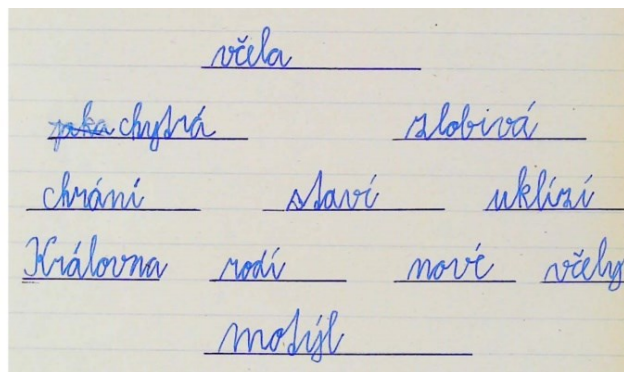 včela
chytrá zlobivá
chrání staví uklízí
Královna rodí nové včely
motýl